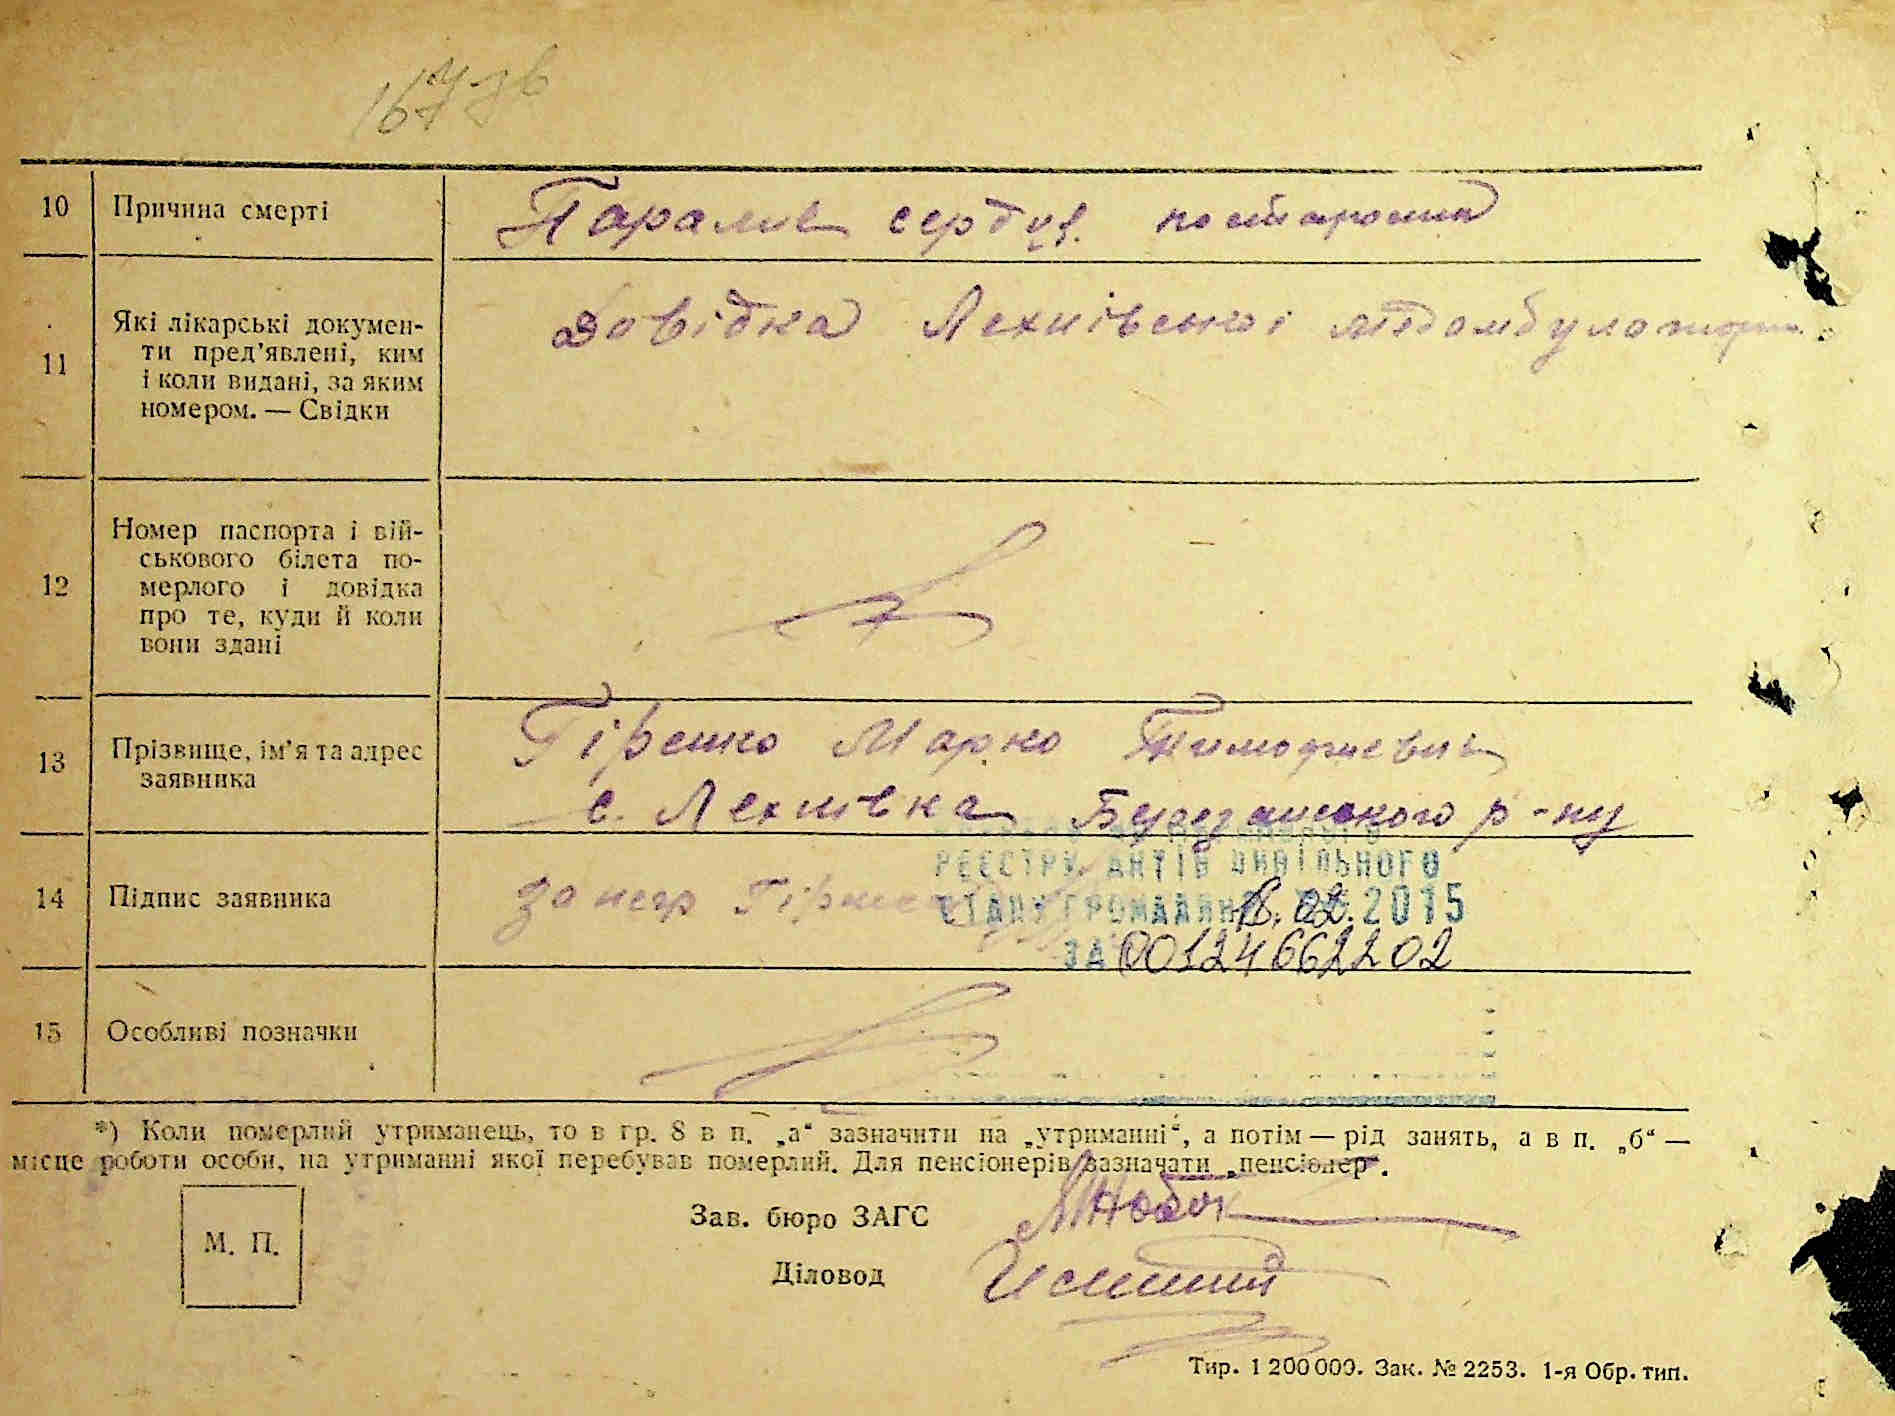 167 зв
10 Причина смерті Параліч серця. по старости
11 Які лікарські докумен-
ти пред'явлені, ким
і коли видані, за яким
номером. — Свідки
Довідка Лехнівської медамбулаторії
12 Номер паспорта і вій-
ськового білета по-
мерлого і довідка
про те, куди й коли
вони здані
13 Прізвище, ім'я та адрес
заявника
Гіренко Марко Тимофієвич
с. Лехнівка Березанського р-ну
РЕЄСТРУ АКТІВ ЦИВІЛЬНОГО
СТАНУ ГРОМАДЯН 2015
ЗА 00124662202
14 Підпис заявника за негр
15 Особливі позначки
*) Коли померлий утриманець, то в гр. 8 в п. „а“ зазначити на „утриманні“, а потім — рід занять, а в п. „б“ —
місце роботи особи, на утриманні якої перебував померлий. Для пенсіонерів зазначати „пенсіонер“.
М. П.
Зав. бюро ЗАГС
Діловод
Тир. 1 200 000. Зак. № 2253. 1-я Обр. тип.